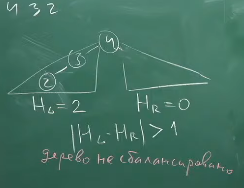 4 3 2
4
3
2
H_L = 2 H_R = 0
|H_L - H_R| > 1
дерево не сбалансировано